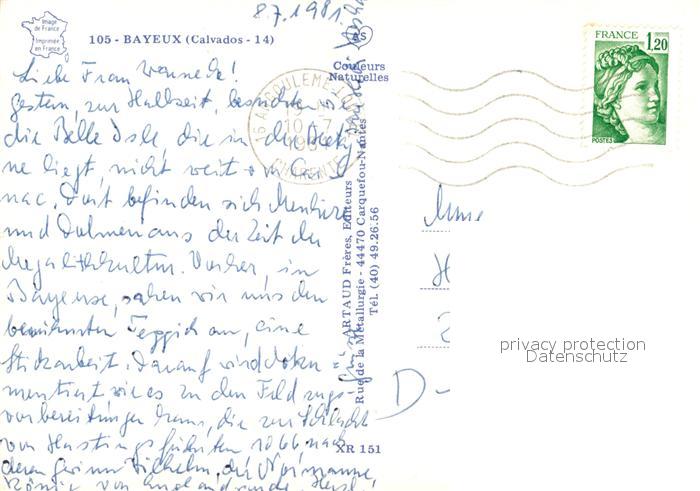 8.7.1981.
Image
de France
Imprimée
en France
105 - BAYEUX (Calvados - 14)
Couleurs
Naturelles
FRANCE
1,20
POSTES
16 ANGOULEME
10-7
CHARENTE
Liebe Frau
gestern, zur Halbzeit, besuchten
die Belle Isle, die in der
ne liegt, nicht weit von Car
nac. Dort befinden sich Menhire
und Dolmen aus der Zeit der
Megalithkultur. Vorher, in
Bayeux, sahen wir uns den
berühmten Teppich an, eine
Stickarbeit. Darauf wird doku=
mentiert wie es zu den Feldzugs-
vorbereitungen kam, die zur Schlacht
von Hastings führten 1066 nach
deren Wilhelm, der Normanne,
König von England wurde. Herzl.
ARTAUD Frères, Editeurs
Rue de la Métallurgie - 44470 Carquefou-Nantes
Tél. (40) 49.26.56
XR 151
Mme
D-
privacy protection
Datenschutz